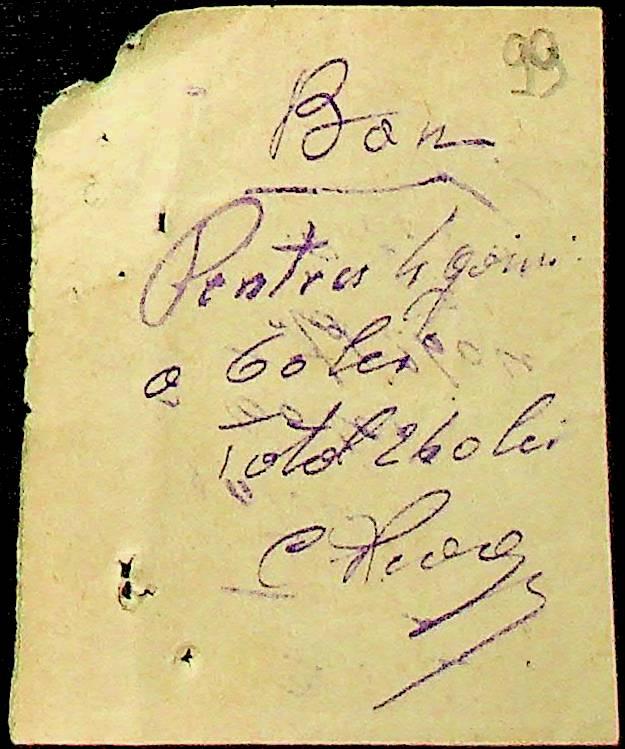 99
Bon
Pentru 4 goini
a 60 lei
Total 240 lei
C